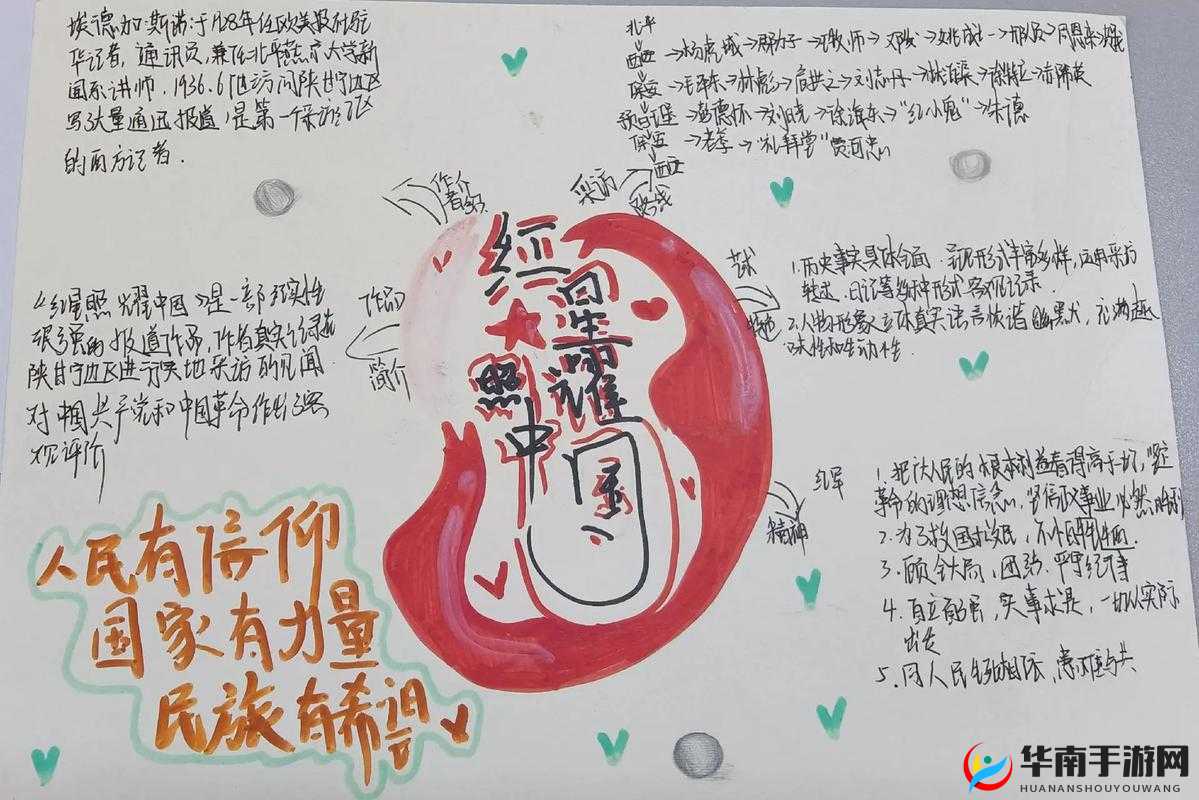 埃德加·斯诺:于1928年任欧美报社驻
华记者,通讯员,兼任北平燕京大学新
闻系讲师.1936.6访问陕甘宁边区
写了大量通讯报道,是第一个采访
的西方记者.
作者介绍
采访路线
北平
西安→杨虎城→邵力子→王牧师→邓发→姚
周恩来
保安→毛泽东→林彪→
徐特立
→彭德怀→刘晓→徐海东→"红小鬼"→朱德
保安→老李→"礼拜堂"
西安
作品
简介
《红星照耀中国》是一部
很强的报道作品,作者真实记录在
陕甘宁边区进行实地采访的见闻
对中国共产党和中国革命作出客
观评价
红星照耀
中国
艺术
1.历史事实具体全面.
转述.日记等多种形式客观记录.
2.人物形象立体真实语言诙谐幽默,充满趣
味性和生动性.
红军
精神
1.把人民的根本利益看得高于一切,坚定
革命的理想信念,坚信正义事业必然胜利
2.为了救国救民,不怕牺牲
3.顾全大局,团结.严守纪律
4.自立自强,实事求是,一切从实际
出发
5.同人民生死相依,患难与共
人民有信仰
国家有力量
民族有希望
华南手游网
HUANANSHOUYOUWANG